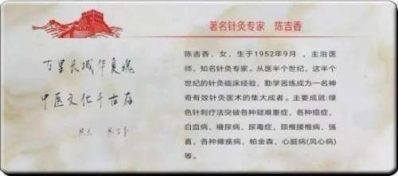 著名针灸专家 陈吉香
万里长城华夏魂
中医文化千古存
陈吉香，女，生于1952年9月，主治医
师，知名针灸专家。从医半个世纪，这半个
世纪的针灸临床经验，勤学苦练成为一名神
奇有效针灸医术的集大成者。主要成就：绿
色针刺疗法突破各种疑难重症，各种癌症，
白血病、糖尿病、尿毒症、颈椎腰椎病、强
直、各种瘫痪病、帕金森、心脏病(风心病)
等。